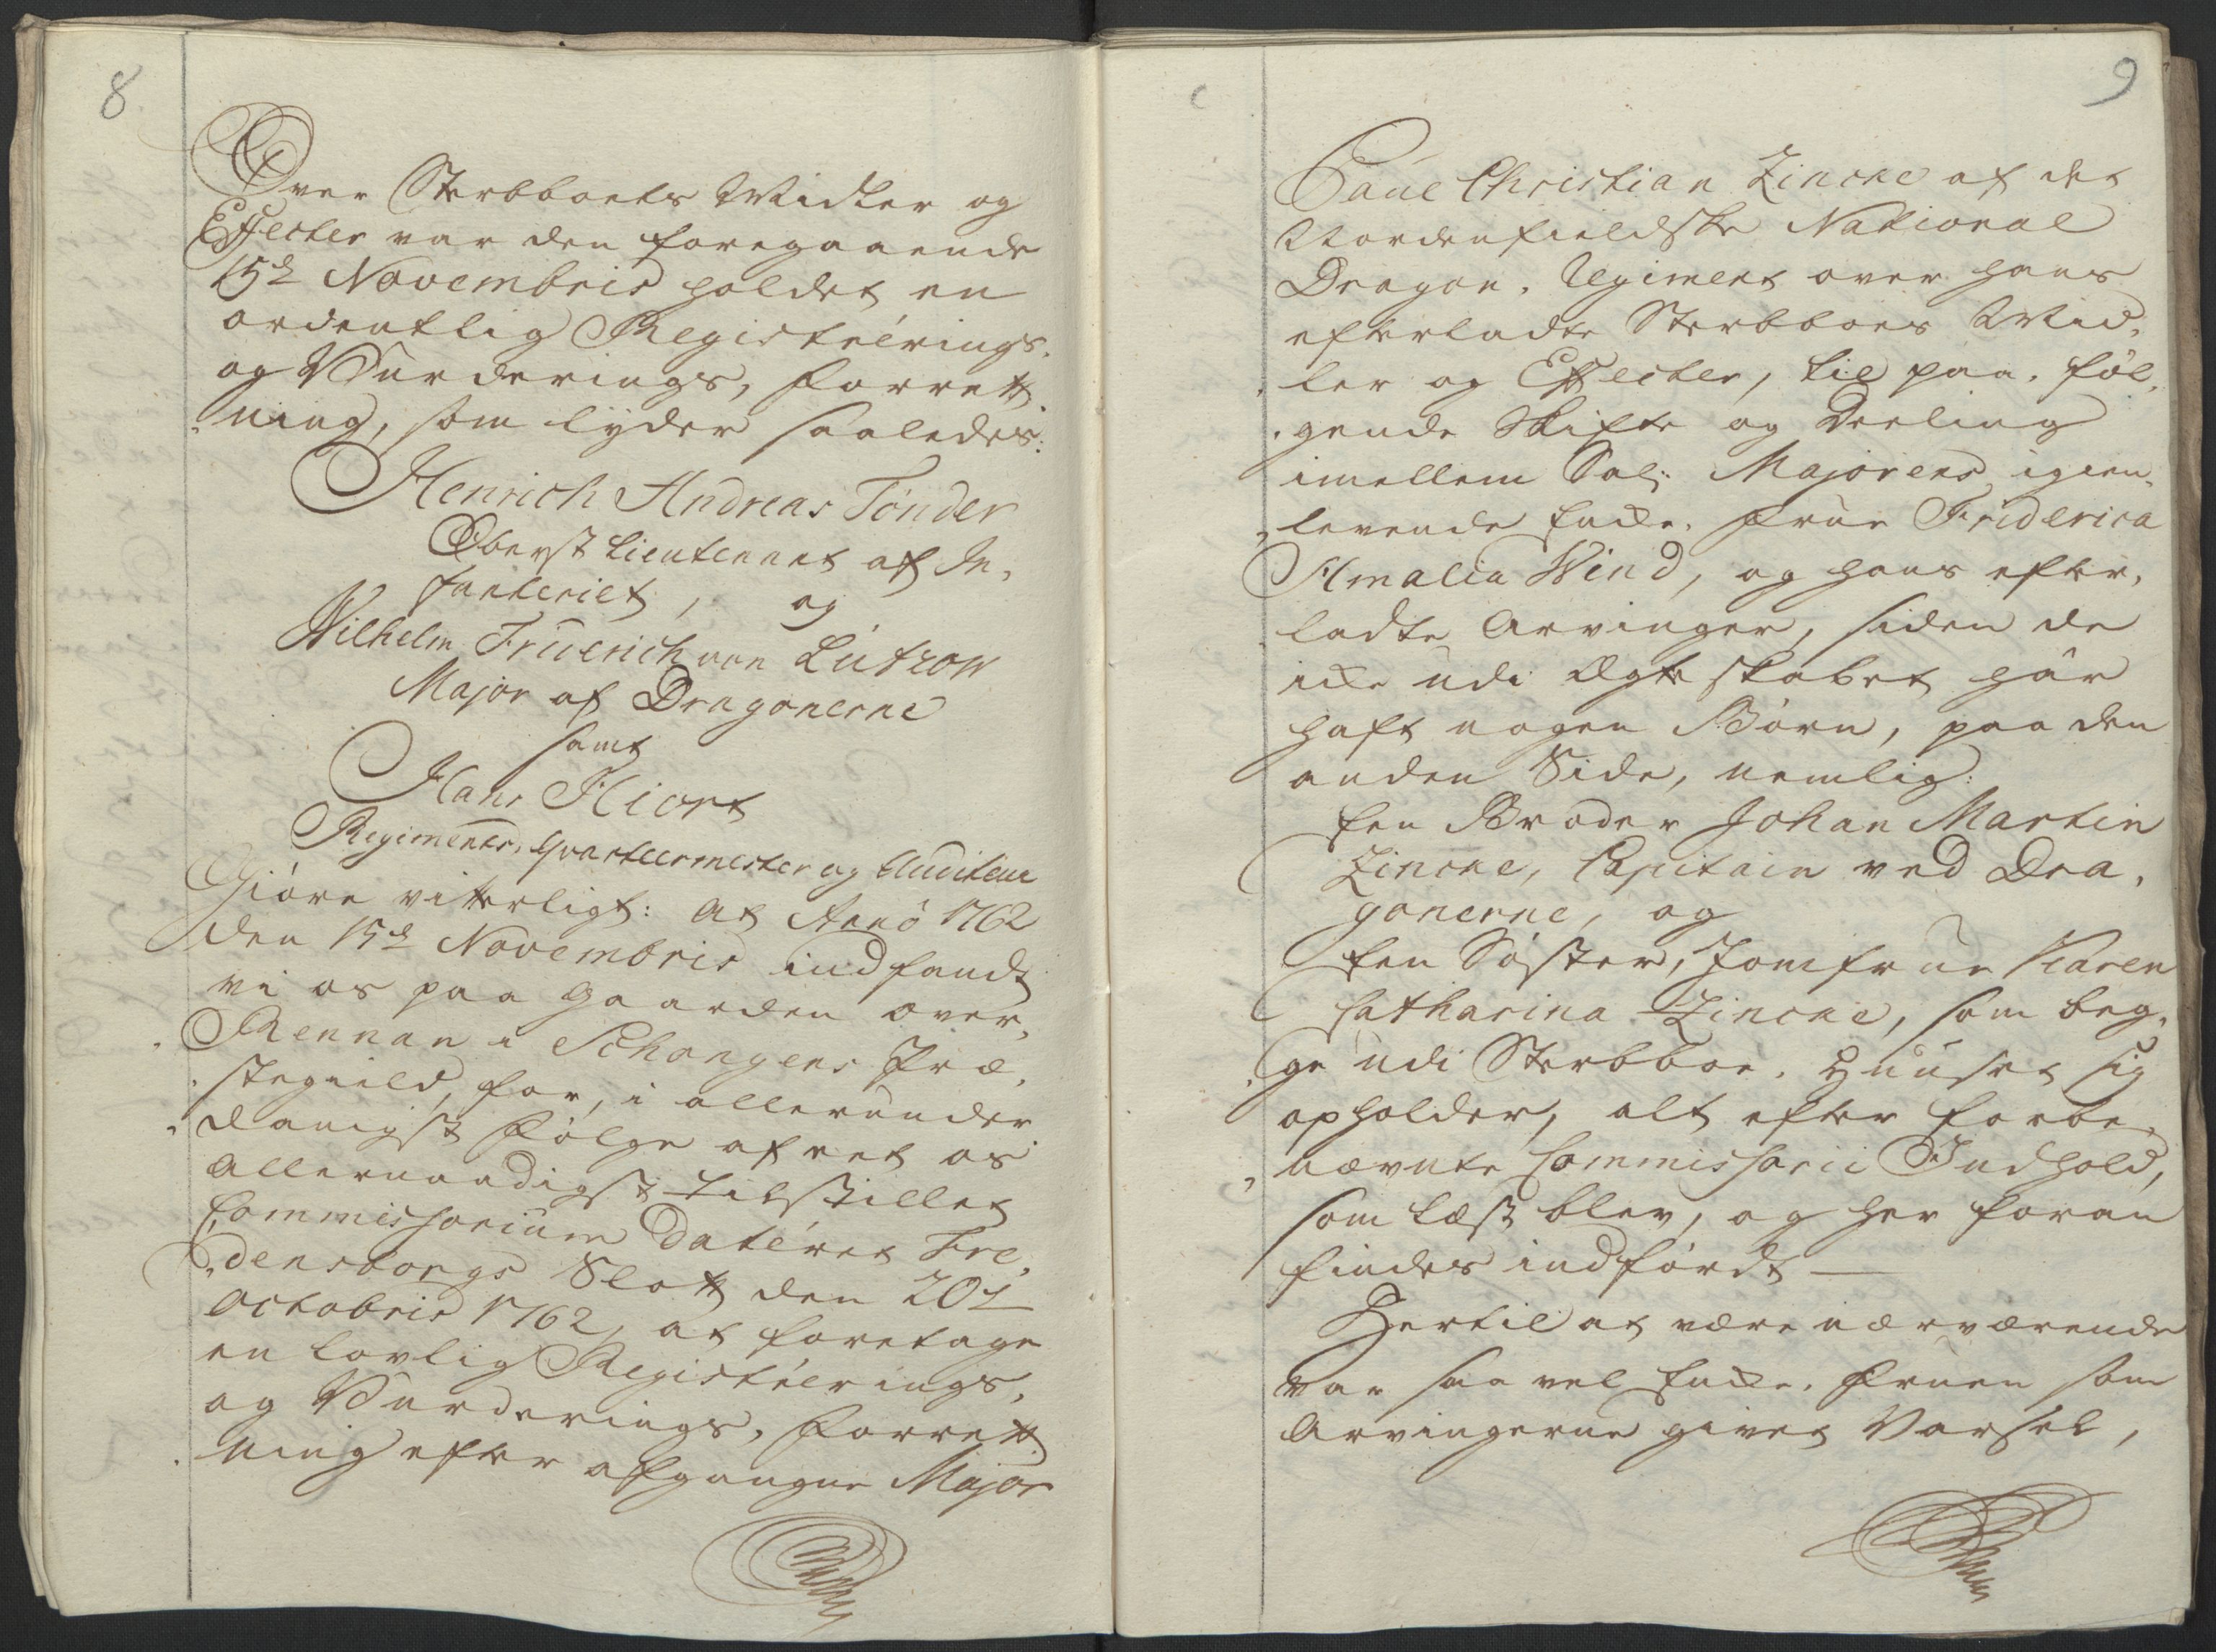 8
Over Sterbboets Midler og
Effecter var den foregaaende
15de Novembris holdet en
ordentlig Registrérings-
og Vurderings, Forrett-
ning, som lyder saaledes:
Henrich Andreas Tönder
Oberst Lieutennet af In-
fanteriet, og
Wilhelm Friderich von Lützow
Major af Dragonerne
samt
Hans Hiort
Regiments, Qvarteermester og Auditeur
Giöre vitterligt: At Annö 1762
den 15de Novembris indfandt
vi os paa Gaarden Over-
Rennan i Schongens Præ-
stegield, for, i allerunder-
danigst Fölge af det os
Allernaadigst tilstillet
Commissorium Datéret Fre-
densborgs Slott den 20de
Octobris 1762, at foretage
en lovlig Registréerings,
og Vurderings, Forrett-
ning efter afgangne Major
9
Paul Christian Zincke af det
Nordenfieldske National
Dragon, Regiment over hans
efterladte Sterbboes Mid-
ler og Effecter, til paa, föl-
gende Skifte og Deeling
imellem Sal: Majorens igien-
levende Encke, Frue Friderica
Amalia Wind, og hans efter-
ladte Arvinger, siden de
icke udi Ægteskabet har
haft nogen Börn, paa den
anden Side, nemlig:
Een Broder Johan Martin
Zincke, Capitain ved Dra-
gonerne, og
Een Söster, Jomfrue Karen
Catharina Zincke, som beg-
ge udi Sterbboe, Huuset sig
opholder, alt efter forbe-
nævnte Commissorii Indhold,
som læst blev, og her foran
findes indfördt —
Hertil at være nærværende
var saa vel Encke, Fruen som
Arvingerne givet Varsel,